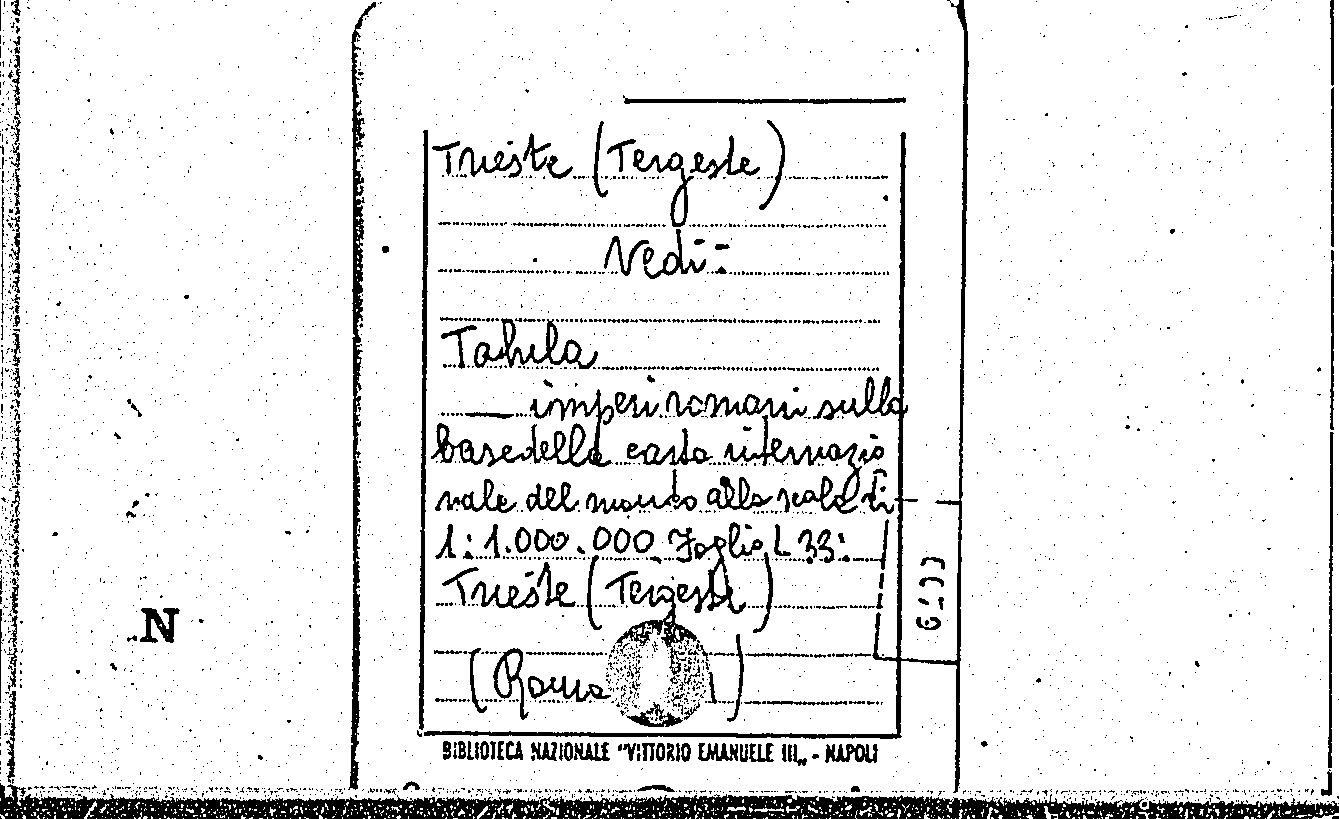 Trieste (Tergeste)
Vedi:
Tabula
— imperi romani sulla
base della carta internazio
nale del mondo alla scala di
1:1.000.000. Foglio L 33:
Trieste (Tergeste)
(Roma )
N
BIBLIOTECA NAZIONALE "VITTORIO EMANUELE III„ - NAPOLI